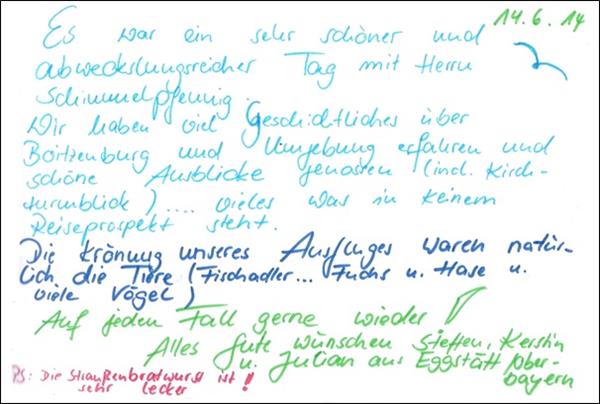 14.6.14
Es war ein sehr schöner und
abwechslungsreicher Tag mit Herrn
Schimmelpfennig.
Wir haben viel Geschichtliches über
Boitzenburg und Umgebung erfahren und
schöne Ausblicke genossen (incl. Kirch-
turmblick).... vieles was in keinem
Reiseprospekt steht.
Die Krönung unseres Ausfluges waren natür-
lich die Tiere (Fischadler... Fuchs u. Hase u.
viele Vögel)
Auf jeden Fall gerne wieder!
Alles Gute wünschen Steffen, Kerstin
u. Julian aus Eggstätt/Ober-
bayern
PS: Die Straußenbratwurst ist
sehr lecker!